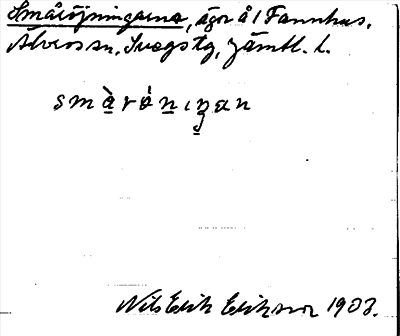 Småröjningarna, ägor å 1 Fannhus,
Älvros sn, Svegs tg, Jämtl. l.
smàrǿnıŋan
Nils Erik Eriksson 1903.